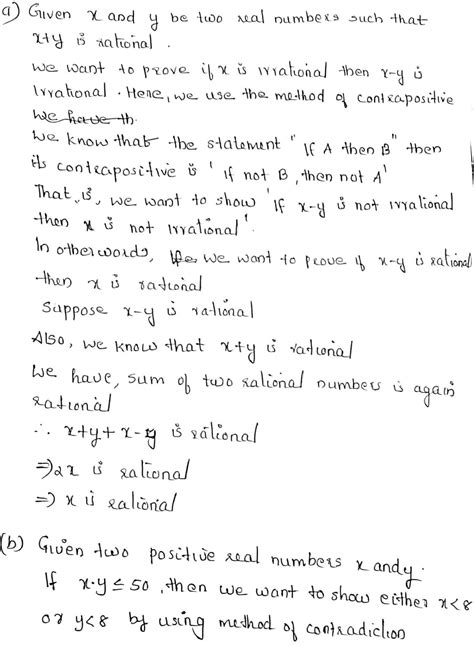 a) Given x and y be two real numbers such that
x+y is rational.
we want to prove if x is irrational then x-y is
Irrational. Here, we use the method of contrapositive
We have th
We know that the statement " If A then B" then
its contrapositive is ' if not B, then not A'
That is, we want to show 'If x-y is not irrational
then x is not irrational'.
In other words, we want to prove if x-y is rational
then x is rational
Suppose x-y is rational
Also, we know that x+y is rational
We have, sum of two rational numbers is again
rational
∴ x+y+x-y is rational
⇒ 2x is rational
⇒ x is rational
(b) Given two positive real numbers x and y.
If x·y ≤ 50, then we want to show either x<8
or y<8 by using method of contradiction